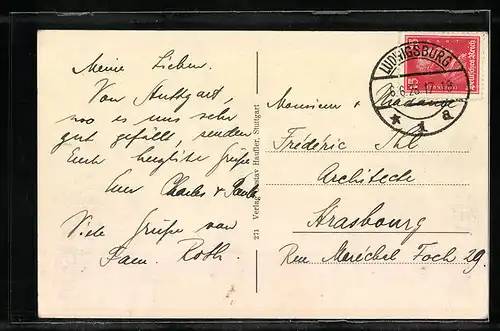 Meine Lieben.
Von Stuttgart,
wo es uns sehr
gut gefällt, senden
Euch herzliche Grüße
Euer Charles &
Viele Grüße von
Fam. Roth.
271 Verlag Gustav Haufler, Stuttgart
LUDWIGSBURG
6.6.28.17
* 1 a
15 15
Deutsches Reich
Monsieur & Madame
Frédéric Ihl
Architecte
Strasbourg
Rue Maréchal Foch 29.